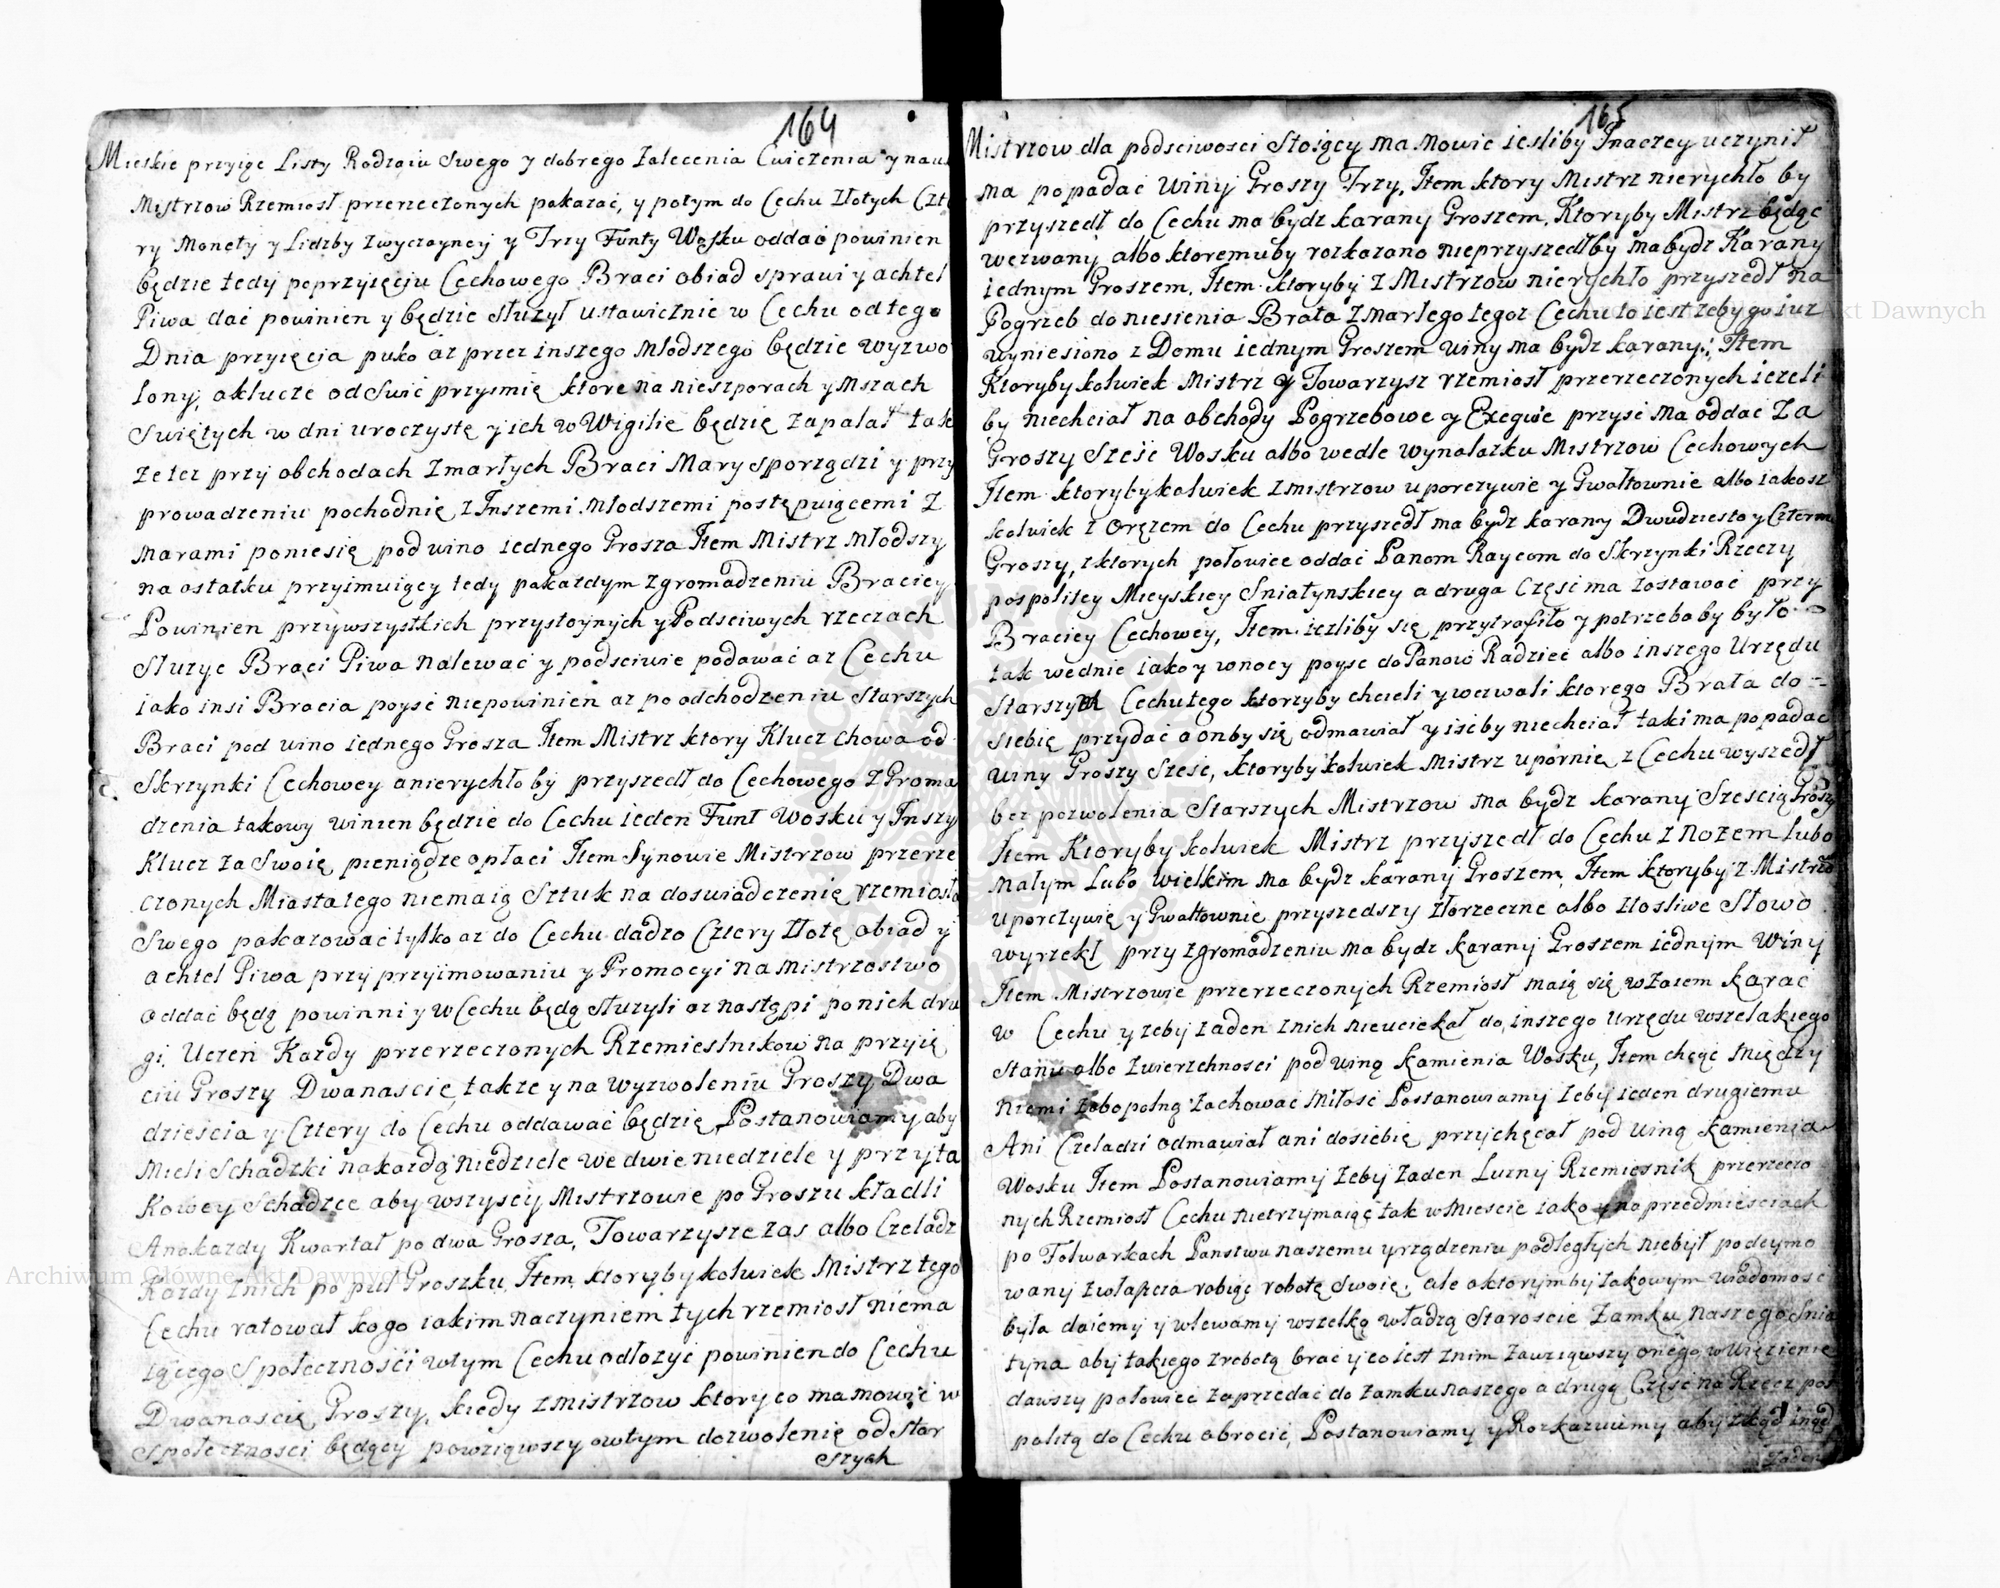 164
Mieskie przyięc Listy Rodzaiu Swego y dobrego Zalecenia Cwiczenia y nau
Mistrzow Rzemiosł przerzeczonych pokazać, y potym do Cechu Złotych Czt
ry Monety y Lidzby zwyczayney y Trzy Funty Wosku oddać powinien
będzie tedy poprzyięciu Cechowego Braci obiad sprawi y achtel
Piwa dać powinien y będzie słuzył ustawicznie w Cechu od tego
Dnia przyięcia puko az przez inszego Młodszego będzie wyzwo
lony, aklucze od Swic przyimię ktore na nieszporach y Mszach
Swiętych w dni uroczystę y ich w Wigilie będzię zapalał tak
ze tez przy obchodach Zmarłych Braci Mary sporządzi y przy
prowadzeniu pochodnię z Inszemi Młodszemi postępuiącemi z
Marami poniesię pod wino iednego Grosza Item Mistrz Młodszy
na ostatku przyimuiący tedy pakazdym zgromadzeniu Braciey
Powinien przywszystkich przystoynych y Podsciwych rzeczach
Słuzyc Braci Piwa nalewać y podsciwie podawać az Cechu
iako insi Bracia poyść niepowinien az po odchodzeniu Starszych
Braci pod wino iednego Grosza Item Mistrz ktory Klucz chowa od
Skrzynki Cechowey anierychło by przyszedł do Cechowego Zgroma
dzenia takowy winien będzie do Cechu ieden Funt Wosku y Inszy
Klucz za Swoię pieniądze opłaci Item Synowie Mistrzow przerze
czonych Miasta tego niemaią Sztuk na doswiadczenię rzemiosła
Swego pokazować tylko az do Cechu dadzo Cztery Złotę obiad y
achtel Piwa przy przyimowaniu y Promocyi na Mistrzostwo
oddać będą powinni y w Cechu będą słuzyli az nastąpi po nich dru
gi. Uczeń Kazdy przerzeczonych Rzemieslnikow na przyię
ciu Groszy Dwanascię, takze y na wyzwoleniu Groszy Dwa
dziescia y Cztery do Cechu oddawać będzię, Postanowiamy aby
Mieli Schadzki nakazdą niedziele we dwie niedziele y przy ta
kowey Schadzce aby wszyscy Mistrzowie po Groszu kładli
Anakazdy Kwartał po dwa Grosza, Towarzysze zas albo Czeladz
Kazdy znich po puł Groszku, Item ktorybykolwiek Mistrz tego
Cechu ratował kogo iakim naczyniem tych rzemiosł niema
iącego Społecznosci wtym Cechu odłozyć powinien do Cechu
Dwanascię Groszy, kiedy zmistrzow ktory co ma mowić w
Społecznosci będący powziąwszy owtym dozwolenię od Star
szych
165
Mistrzow dla podsciwosci Stoiący ma mowic iesliby Inaczey uczynił
ma popadać winy Groszy Trzy, Item ktory Mistrz nierychło by
przyszedł do Cechu ma bydz karany Groszem, Ktoryby Mistrz będąc
wezwany albo ktoremuby rozkazano nieprzyszedłby mabydz Karany
iednym Groszem, Item ktoryby z Mistrzow nierychło przyszedł na
Pogrzeb do niesienia Brata Zmarłego tegoz Cechu to iest zeby go iuz
wyniesiono z Domu iednym Groszem winy ma bydz karany; Item
Ktorybykolwiek Mistrz y Towarzysz rzemiosł przerzeczonych iezeli
by niechciał na obchody Pogrzebowe y Exeqwie przyść ma oddać Za
Groszy Sześć Wosku albo wedle wynalazku Mistrzow Cechowych
Item ktorybykolwiek zmistrzow uporczywie y Gwałtownie albo iakosz
kolwiek z orężem do Cechu przyszedł ma bydz karany Dwudziesto y Czterma
Groszy, zktorych połowice oddać Panom Raycom do Skrzynki Rzeczy
pospolitey Mieyskiey Sniatynskiey a druga Część ma zostawać przy
Braciey Cechowey, Item iezliby się przytrafiło y potrzeba by było
tak wednie iako y wnocy poyść do Panow Radziec albo inszego Urzędu
Starszych Cechu tego ktorzyby chcieli y wezwali ktorego Brata do
siebię przydać a onby się odmawiał y iść by niechciał taki ma popadać
winy Groszy Sześć, ktorybykolwiek Mistrz upornię z Cechu wyszedł
bez pozwolenia Starszych Mistrzow ma bydz karany Szescią Groszy
Item Ktorybykolwiek Mistrz przyszedł do Cechu z Nozem lubo
Małym Lubo Wielkim ma bydz karany Groszem, Item ktoryby z Mistrzo
uporczywię y Gwałtownie przyszedszy złorzeczne albo złosliwe Słowo
wyrzekł przy zgromadzeniu ma bydz karany Groszem iednym Winy
Item Mistrzowie przerzeczonych Rzemiosł maią się wzaiem karać
w Cechu y zeby zaden znich nieuciekał do inszego urzędu wszelakiego
Stanu albo zwierzchnosci pod winą kamienia Wosku, Item chcąc między
Niemi zobopolną zachować miłość Postanowiamy zeby ieden drugiemu
Ani Czeladzi odmawiał ani dosiebię przychęcał pod winą kamienia
Wosku Item Postanowiamy zeby zaden Luzny Rzemiesnik przerzeczo
nych Rzemiosł Cechu nietrzymaiąc tak w Miescie iako y na przedmiesciach
po Folwarkach Panstwu naszemu y rządzeniu podległych niebył podeymo
wany zwłaszcza robiąc robotę Swoię; ale o ktorymby takowym wiadomosc
była daiemy y wlewamy wszelką władzą Staroscie Zamku naszego Snia
tyna aby takiego zrobotą brać y co iest znim zawziąwszy onego w więzienie
dawszy połowicę zaprzedać do zamku naszego a drugą Część na Rzecz pos
politą do Cechu obrocić, Postanowiamy y Rozkazuiemy aby zkąd inąd
zaden